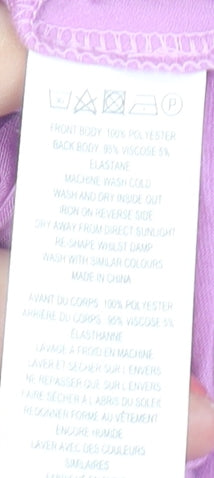 FRONT BODY: 100% POLYESTER
BACK BODY: 95% VISCOSE 5%
ELASTANE
MACHINE WASH COLD
WASH AND DRY INSIDE OUT
IRON ON REVERSE SIDE
DRY AWAY FROM DIRECT SUNLIGHT
RE-SHAPE WHILST DAMP
WASH WITH SIMILAR COLOURS
MADE IN CHINA
AVANT DU CORPS: 100% POLYESTER
ARRIÈRE DU CORPS: 95% VISCOSE 5%
ELASTHANNE
LAVAGE À FROID EN MACHINE
LAVER ET SÉCHER SUR L'ENVERS
NE REPASSER QUE SUR L'ENVERS
FAIRE SÉCHER À L'ABRIS DU SOLEIL
REDONNER FORME AU VÊTEMENT
ENCORE HUMIDE
LAVER AVEC DES COULEURS
SIMILAIRES